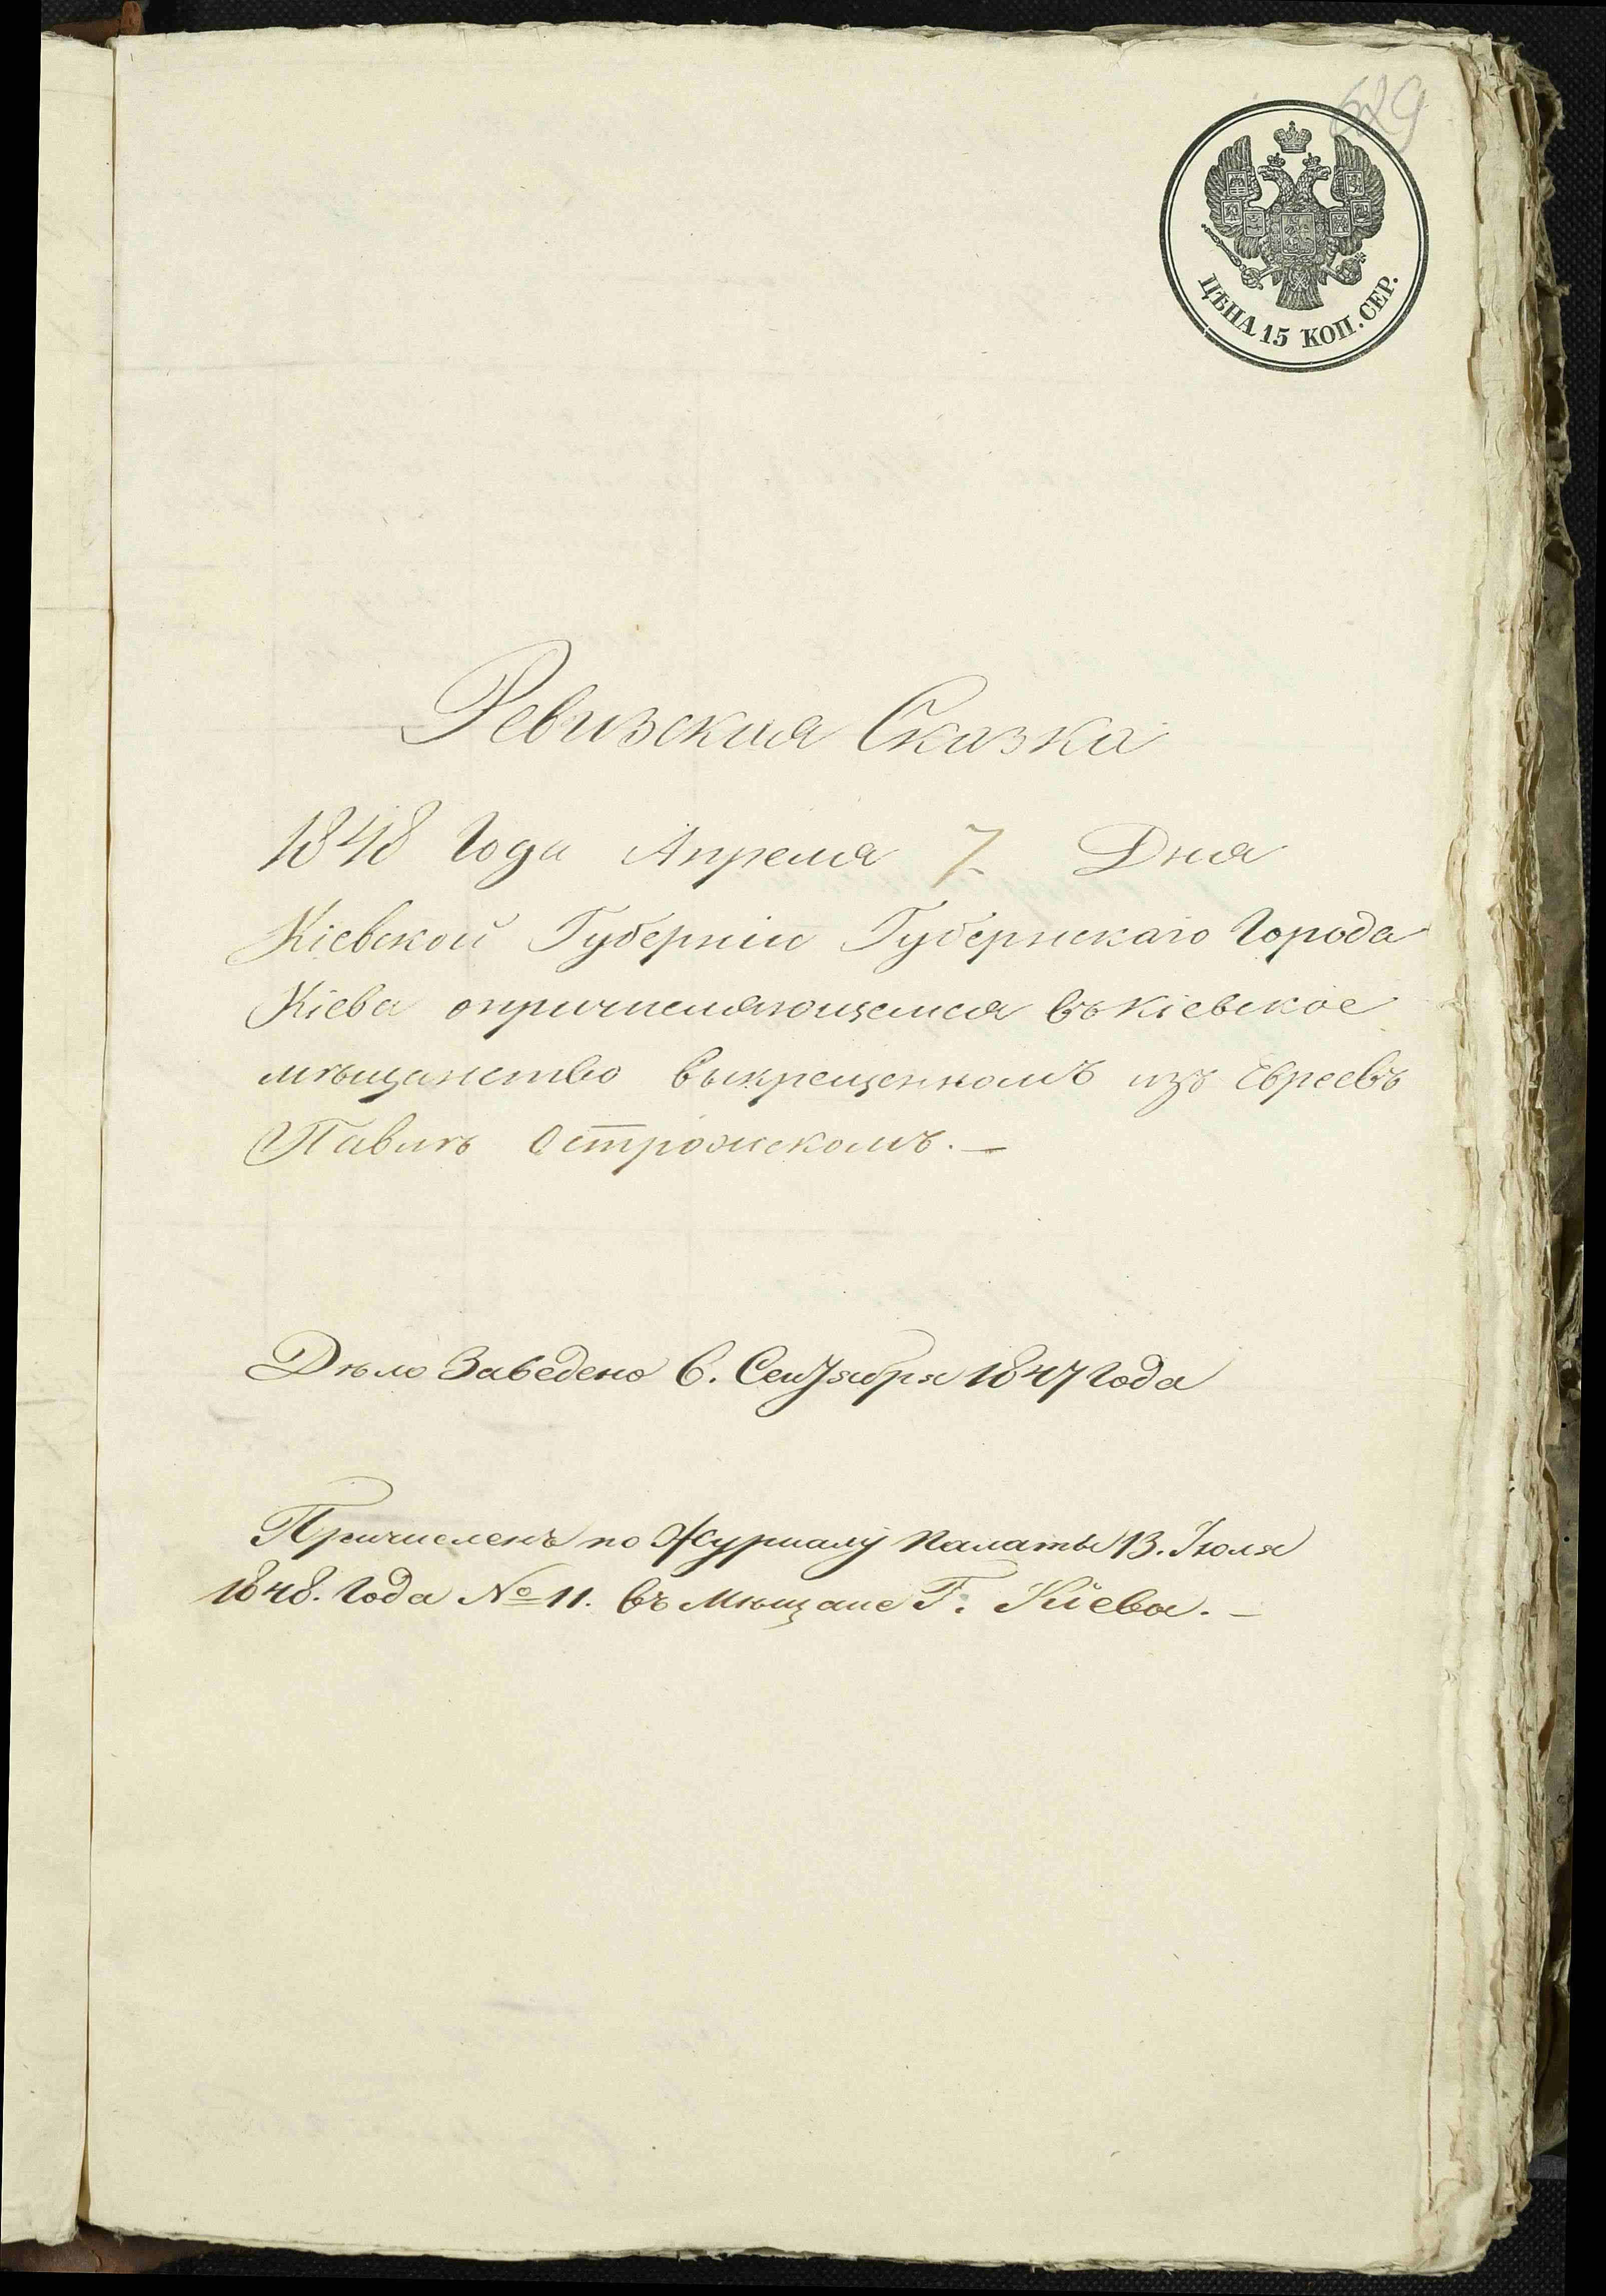 629
ЦѢНА 15 КОП. СЕР.
Ревизская Сказка
1848 Года Апреля 7. Дня
Кіевской Губерніи Губернскаго Города
Кіева опричисляющемся въ Кіевское
мѣщанство выкрещенномъ изъ Евреевъ
Павлѣ Острожскомъ. —
Дѣло Заведено 6. Сентября 1847 Года
Причисленъ по Журналу Палаты 13. Іюля
1848. Года № 11. въ Мѣщане Г. Кіева. —